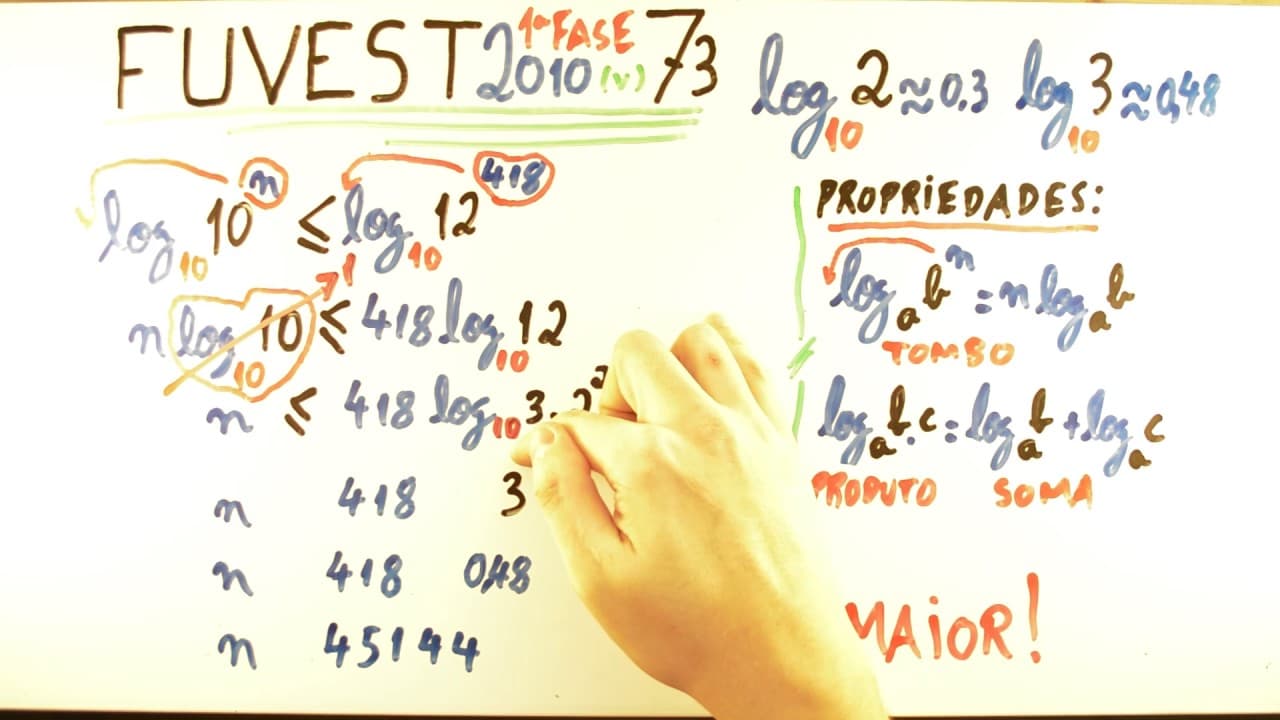 FUVEST 2010 1ª FASE (V) 73
log₁₀ 2 ≈ 0.3 log₁₀ 3 ≈ 0,48
log₁₀ 10ⁿ ≤ log₁₀ 12⁴¹⁸
n log₁₀ 10 1 ≤ 418 log₁₀ 12
n ≤ 418 log₁₀ 3.2²
n 418 3
n 418 0,48
n 45144
PROPRIEDADES:
logₐ bⁿ = n logₐ b
TOMBO
logₐ b.c = logₐ b + logₐ c
PRODUTO SOMA
MAIOR!